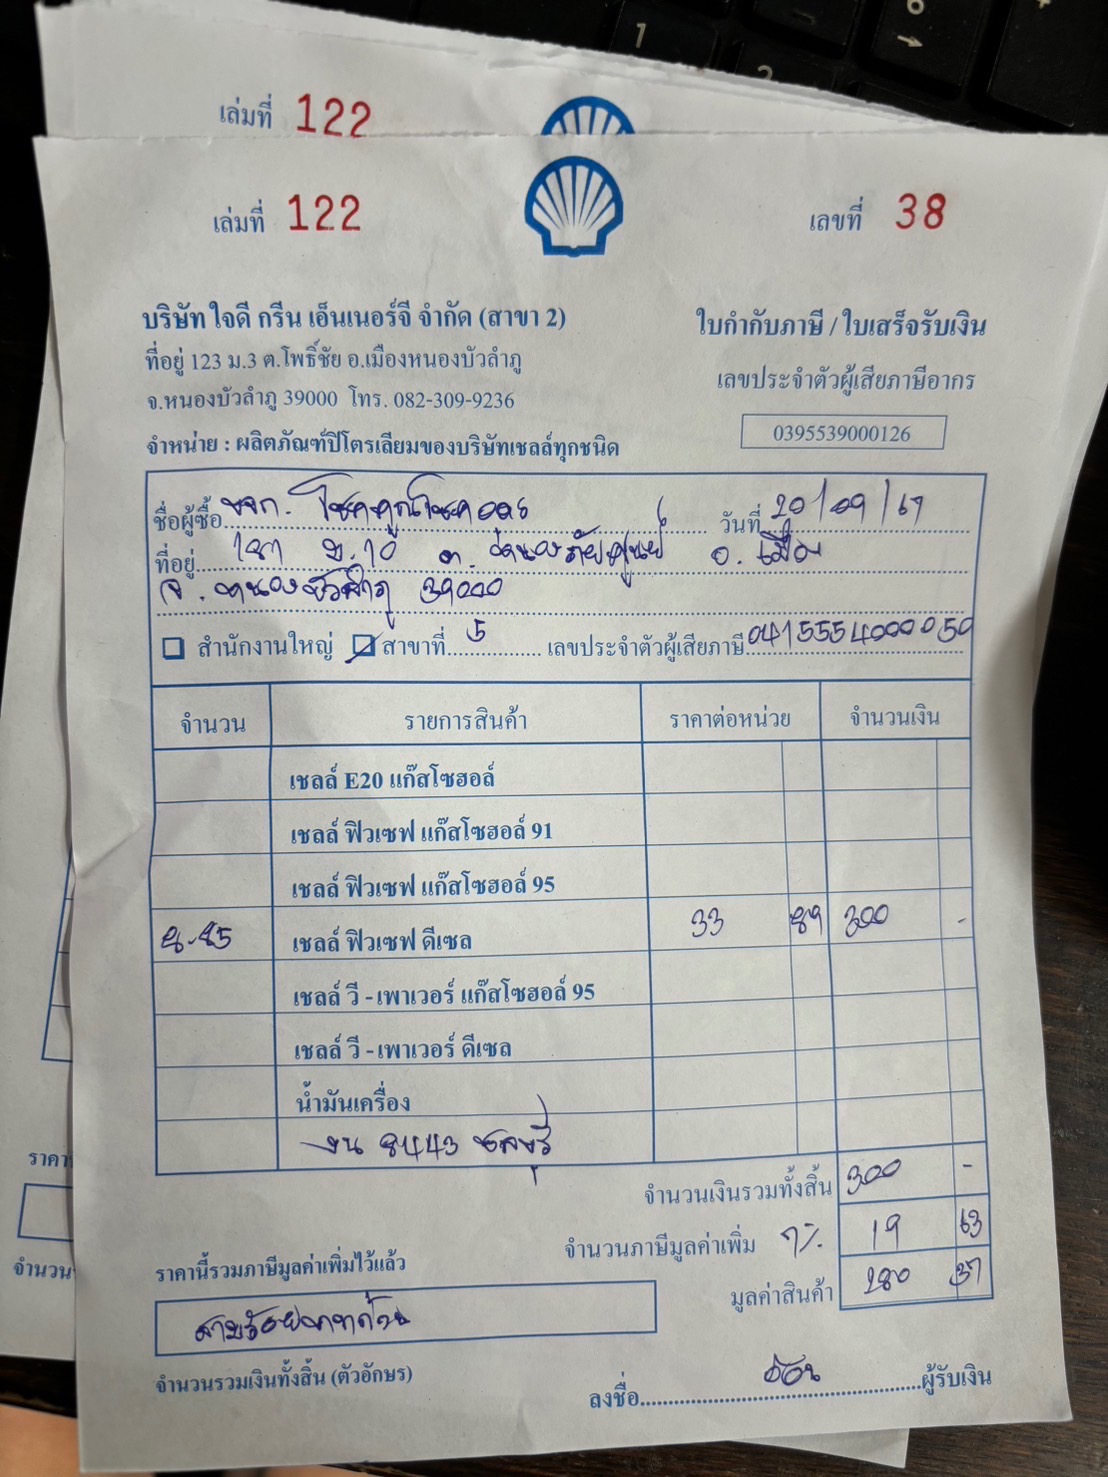 เล่มที่ 122
เล่มที่ 122
เลขที่ 38
บริษัท ใจดี กรีน เอ็นเนอร์จี จำกัด (สาขา 2)
ใบกำกับภาษี / ใบเสร็จรับเงิน
ที่อยู่ 123 ม.3 ต.โพธิ์ชัย อ.เมืองหนองบัวลำภู
เลขประจำตัวผู้เสียภาษีอากร
จ.หนองบัวลำภู 39000 โทร. 082-309-9236
0395539000126
จำหน่าย : ผลิตภัณฑ์ปิโตรเลียมของบริษัทเชลล์ทุกชนิด
ชื่อผู้ซื้อ หจก. โชคคูณโชค วันที่ 20/09/67
ที่อยู่ 187 ม.10 ต. หนองภัยศูนย์ อ. เมือง
จ. หนองบัวลำภู 39000
สำนักงานใหญ่ สาขาที่ 5 เลขประจำตัวผู้เสียภาษี 0415554000050
จำนวน รายการสินค้า ราคาต่อหน่วย จำนวนเงิน
เชลล์ E20 แก๊สโซฮอล์
เชลล์ ฟิวเซฟ แก๊สโซฮอล์ 91
เชลล์ ฟิวเซฟ แก๊สโซฮอล์ 95
8.85 เชลล์ ฟิวเซฟ ดีเซล 33 89 300 -
เชลล์ วี - เพาเวอร์ แก๊สโซฮอล์ 95
เชลล์ วี - เพาเวอร์ ดีเซล
น้ำมันเครื่อง
งน 8443 ชลบุรี
จำนวนเงินรวมทั้งสิ้น 300 -
จำนวนภาษีมูลค่าเพิ่ม 7% 19 63
ราคานี้รวมภาษีมูลค่าเพิ่มไว้แล้ว
มูลค่าสินค้า 280 37
สามร้อยบาทถ้วน
จำนวนรวมเงินทั้งสิ้น (ตัวอักษร)
ลงชื่อ ผู้รับเงิน
จำนวน